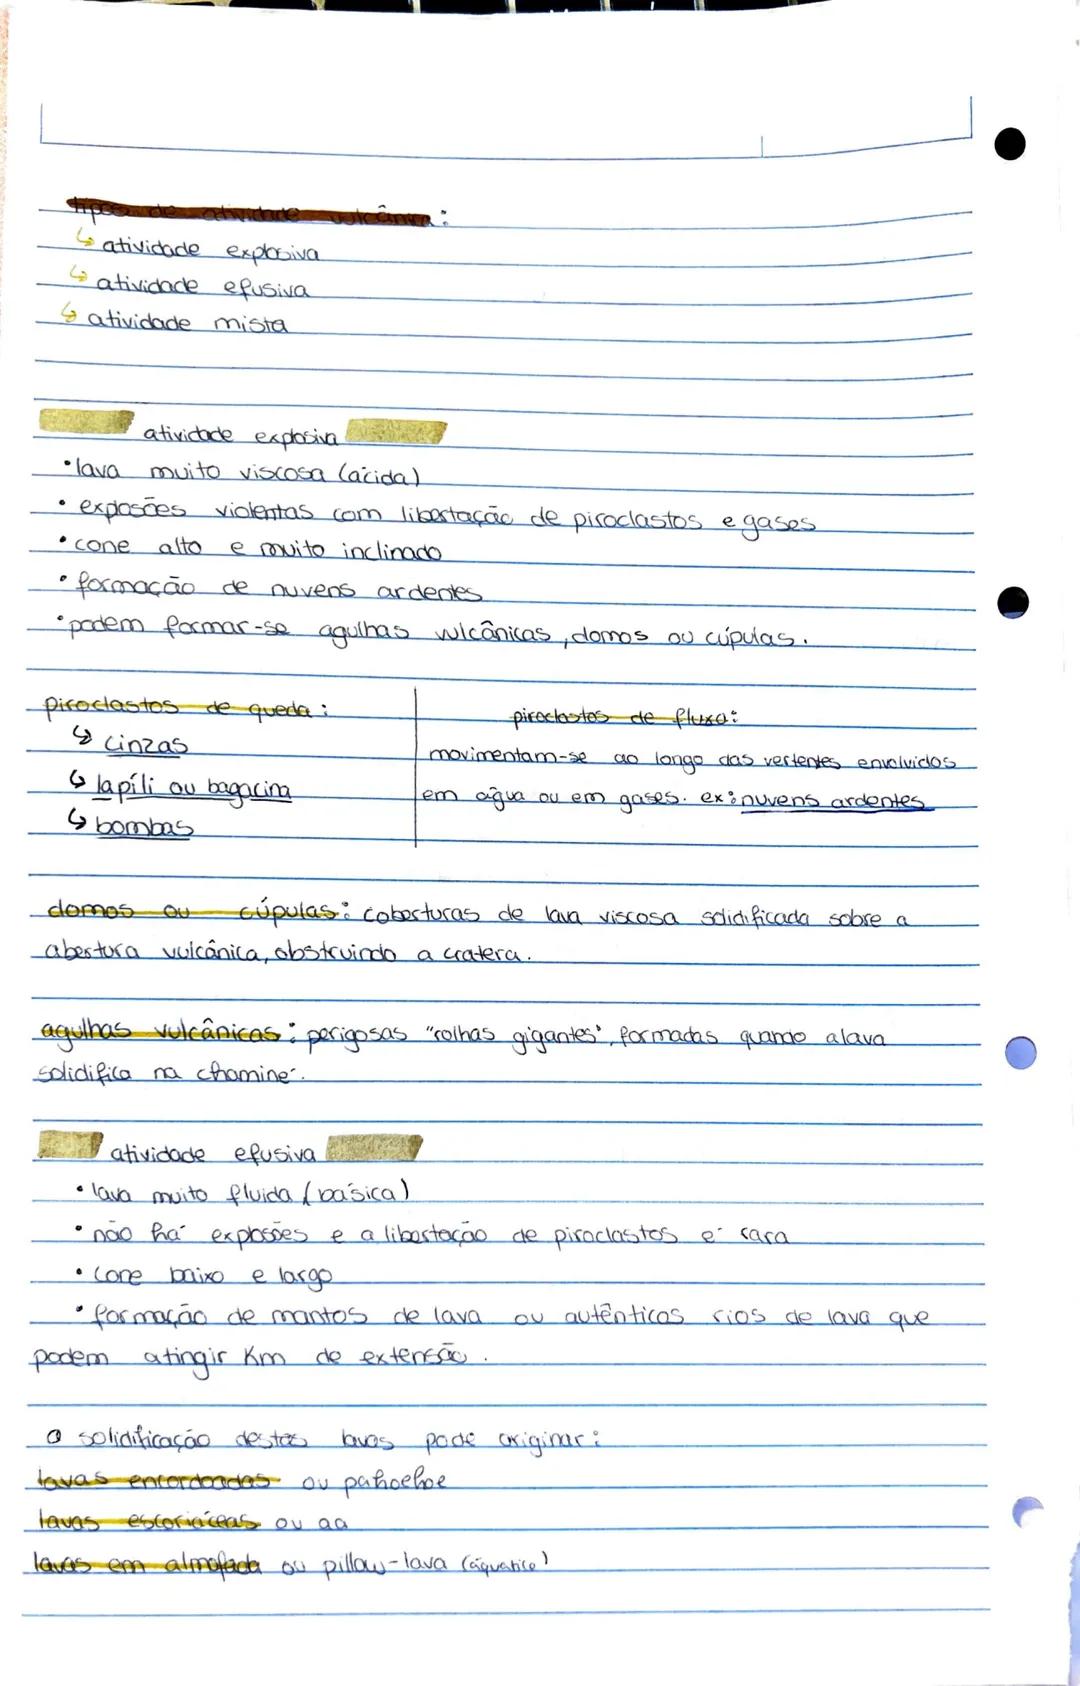 tipos de atividade vulcânica:
↳ atividade explosiva
↳ atividade efusiva
↳ atividade mista
atividade explosiva
• lava muito viscosa (ácida)
• explosões violentas com libertação de piroclastos e gases
• cone alto e muito inclinado
• formação de nuvens ardentes
• podem formar-se agulhas vulcânicas, domos ou cúpulas.
piroclastos de queda:
↳ cinzas
↳ lapíli ou bagacina
↳ bombas
piroclastos de fluxo:
movimentam-se ao longo das vertentes envolvidos
em água ou em gases. ex: nuvens ardentes
domos ou cúpulas: coberturas de lava viscosa solidificada sobre a
abertura vulcânica, obstruindo a cratera.
agulhas vulcânicas: perigosas "rolhas gigantes", formadas quando a lava
solidifica na chaminé.
atividade efusiva
• lava muito fluida (básica)
• não há explosões e a libertação de piroclastos é rara
• cone baixo e largo
• formação de mantos de lava ou autênticos rios de lava que
podem atingir Km de extensão.
a solidificação destas lavas pode originar:
lavas encordoadas ou pahoehoe
lavas escoriáceas ou aa
lavas em almofada ou pillow-lava (aquático)